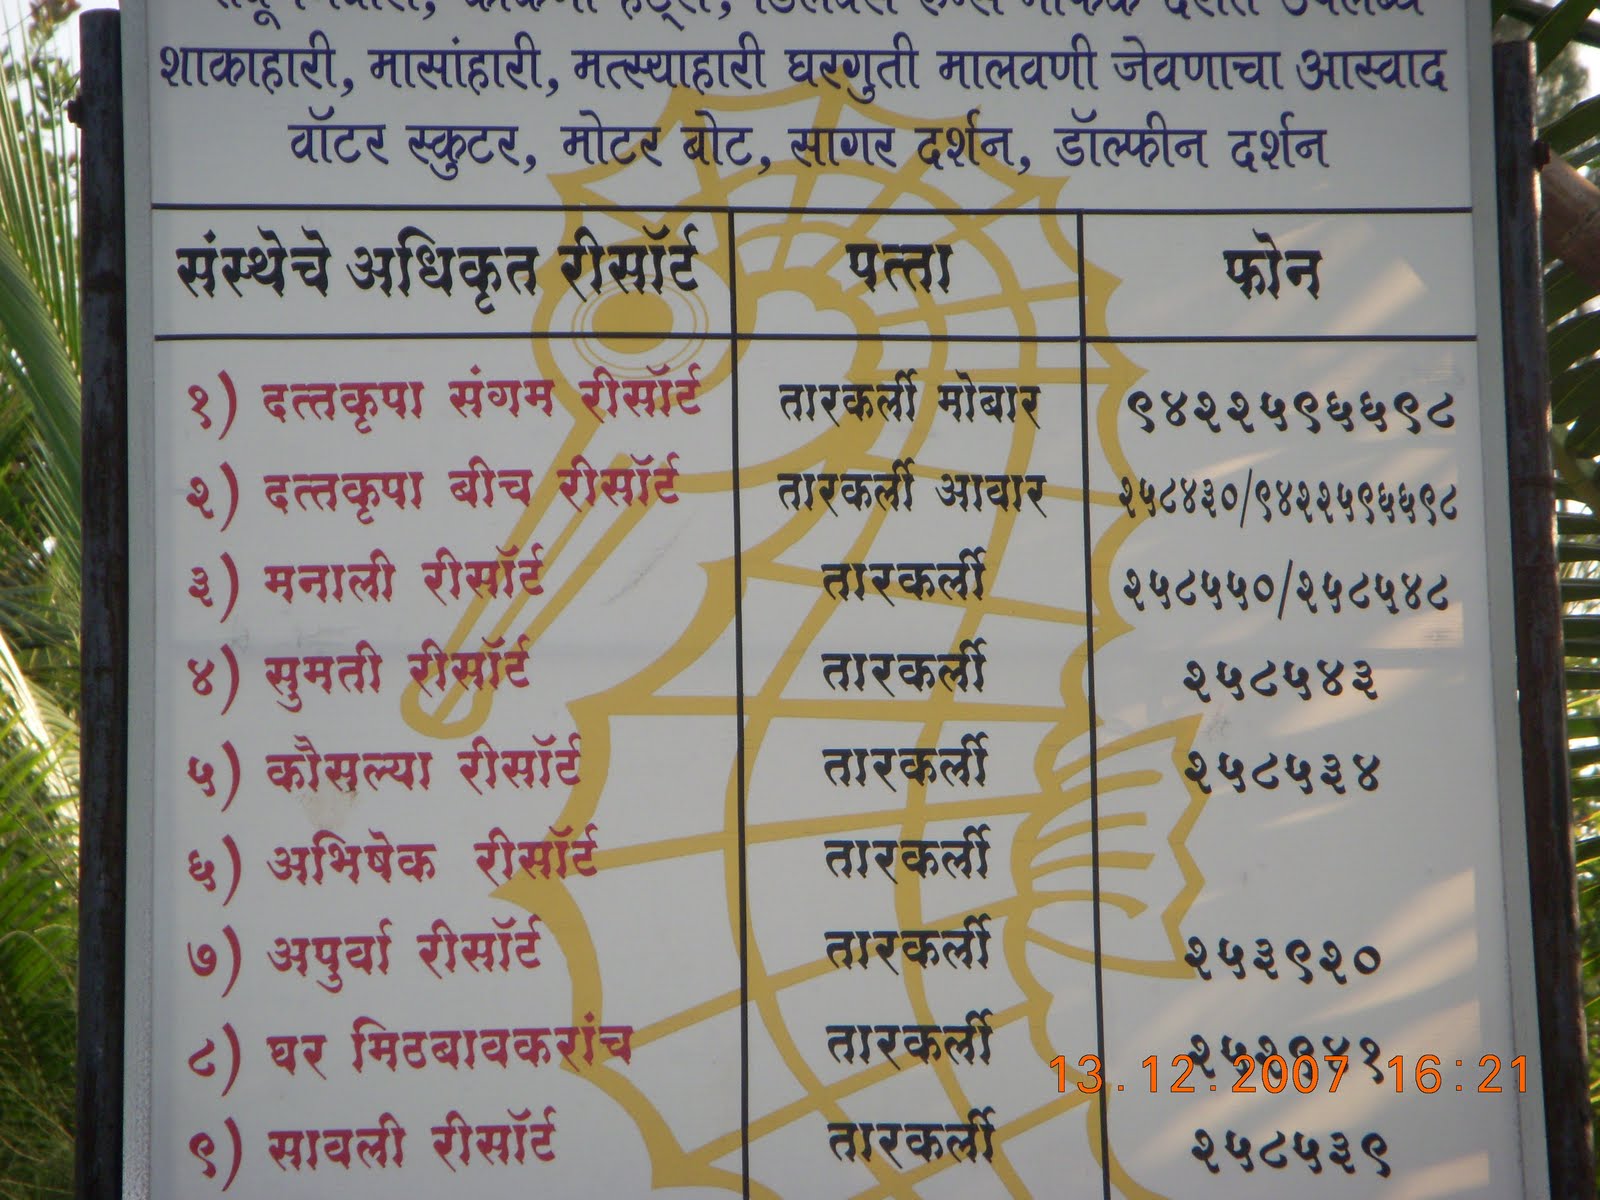 शाकाहारी, मासांहारी, मत्स्याहारी घरगुती मालवणी जेवणाचा आस्वाद
वॉटर स्कुटर, मोटर बोट, सागर दर्शन, डॉल्फीन दर्शन
संस्थेचे अधिकृत रीसॉर्ट पत्त्ता फोन
१) दत्तकृपा संगम रीसॉर्ट तारकर्ली मोबार ९४२२५९६६९८
२) दत्तकृपा बीच रीसॉर्ट तारकर्ली आवार २५८४३०/९४२२५९६६९८
३) मनाली रीसॉर्ट तारकर्ली २५८५५०/२५८५४८
४) सुमती रीसॉर्ट तारकर्ली २५८५४३
५) कौसल्या रीसॉर्ट तारकर्ली २५८५३४
६) अभिषेक रीसॉर्ट तारकर्ली
७) अपुर्वा रीसॉर्ट तारकर्ली २५३९२०
८) घर मिठबावकरांच तारकर्ली
13.12.2007 16:21
९) सावली रीसॉर्ट तारकर्ली २५८५३९